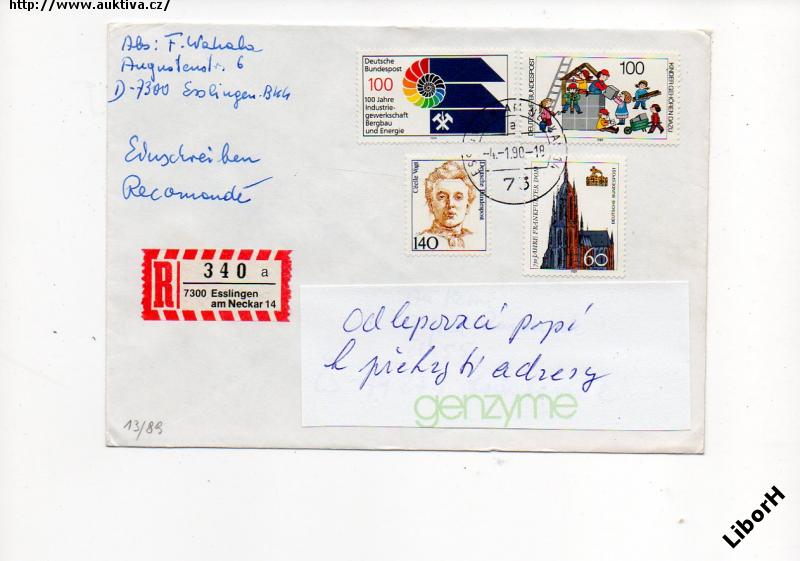 http://www.auktiva.cz/
Abs: F. Wahala
Augustenstr. 6
D-7300 Esslingen
Einschreiben
Recomandé
Deutsche
Bundespost
100
100 Jahre
Industrie-
gewerkschaft
Bergbau
und Energie
DEUTSCHE BUNDESPOST
100
KINDER GEHÖREN DAZU
-4.-1.90-18
73
Cécile Vogt
Deutsche Bundespost
140
750 JAHRE FRANKFURTER DOM
DEUTSCHE BUNDESPOST
60
R
340 a
7300 Esslingen
am Neckar 14
Odlepovací papí
k překrytí adresy
genzyme
13/89
LiborH